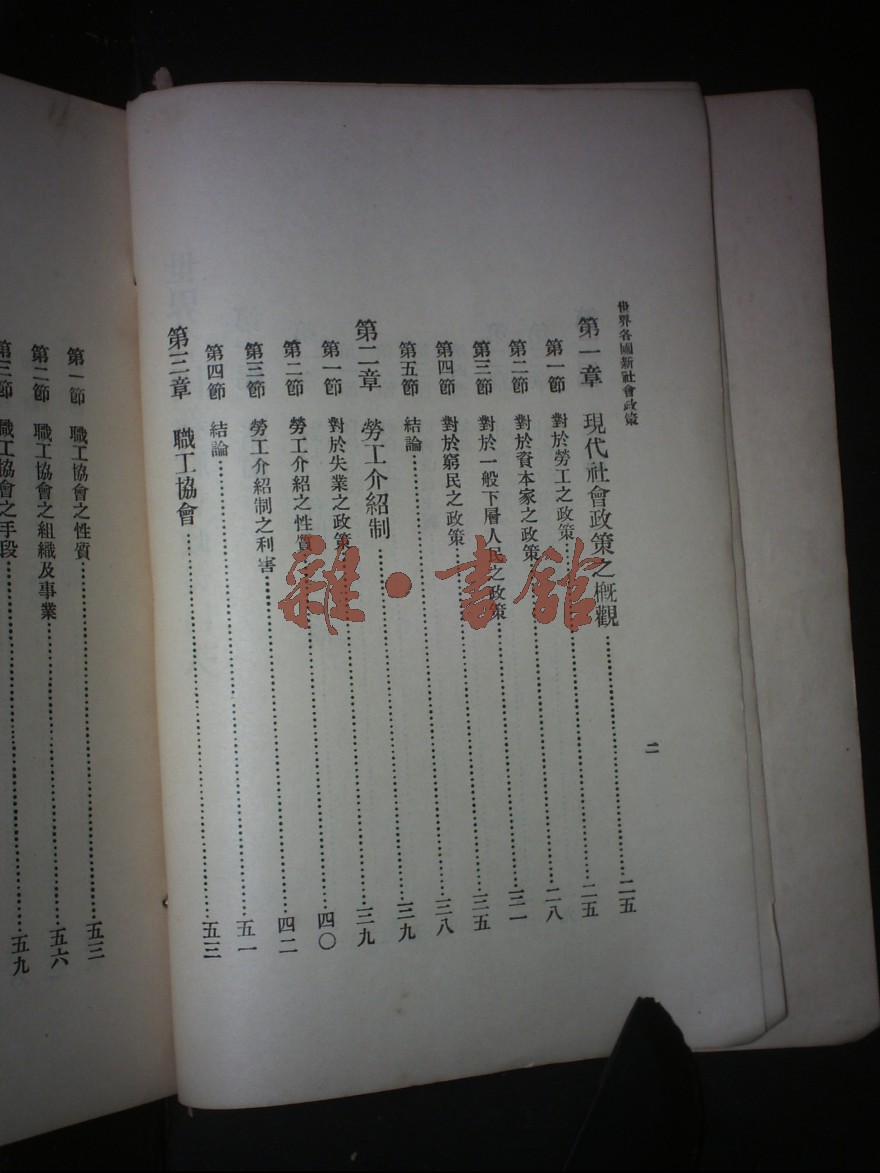 世界各國新社會政策
二
第一章 現代社會政策之概觀……二五
第一節 對於勞工之政策……二五
第二節 對於資本家之政策……二八
第三節 對於一般下層人民之政策……三一
第四節 對於窮民之政策……三五
第五節 結論……三八
第二章 勞工介紹制……三九
第一節 對於失業之政策……三九
第二節 勞工介紹之性質……四〇
第三節 勞工介紹制之利害……四二
第四節 結論……五一
第三章 職工協會……五三
第一節 職工協會之性質……五三
第二節 職工協會之組織及事業……五六
第三節 職工協會之手段……五九
雜·書館